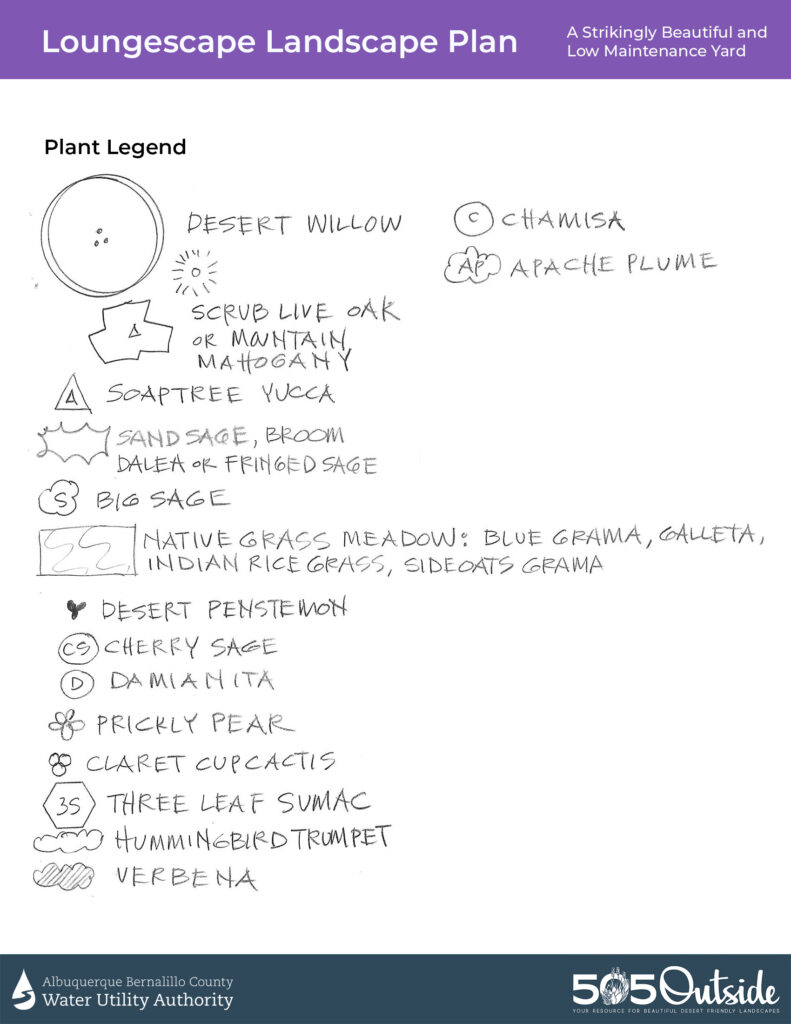 Loungescape Landscape Plan
A Strikingly Beautiful and
Low Maintenance Yard
Plant Legend
DESERT WILLOW
SCRUB LIVE OAK
OR MOUNTAIN
MAHOGANY
SOAPTREE YUCCA
SAND SAGE, BROOM
DALEA OR FRINGED SAGE
S BIG SAGE
NATIVE GRASS MEADOW: BLUE GRAMA, GALLETA,
INDIAN RICE GRASS, SIDEOATS GRAMA
DESERT PENSTEMON
CS CHERRY SAGE
D DAMIANITA
PRICKLY PEAR
CLARET CUP CACTIS
3S THREE LEAF SUMAC
HUMMINGBIRD TRUMPET
VERBENA
C CHAMISA
AP APACHE PLUME
Albuquerque Bernalillo County
Water Utility Authority
505Outside
YOUR RESOURCE FOR BEAUTIFUL DESERT FRIENDLY LANDSCAPES